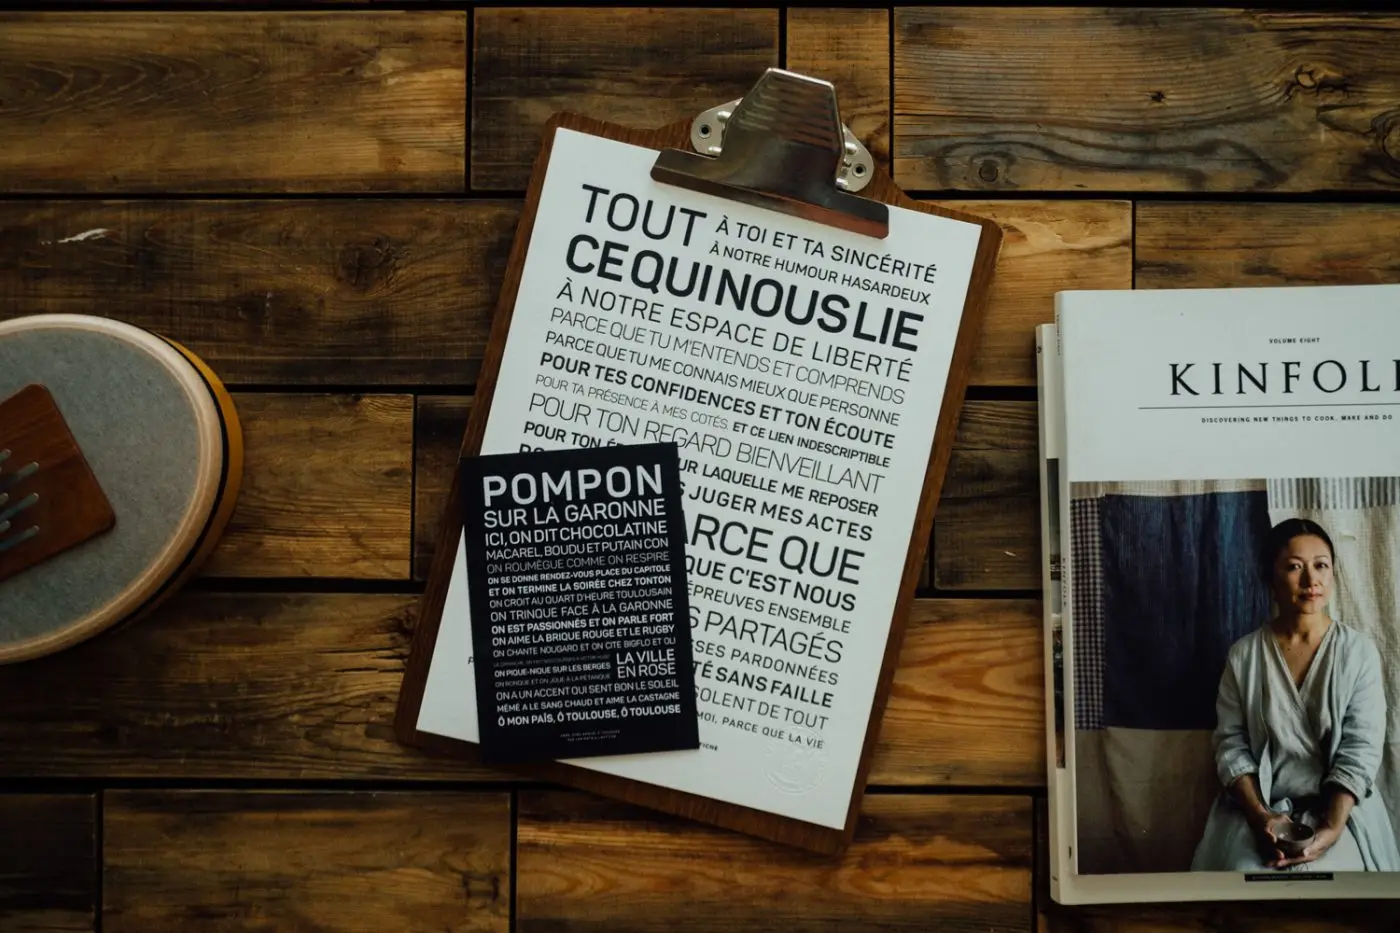 TOUT
À TOI ET TA SINCÉRITÉ
À NOTRE HUMOUR HASARDEUX
CE QUI NOUS LIE
À NOTRE ESPACE DE LIBERTÉ
PARCE QUE TU M'ENTENDS ET COMPRENDS
PARCE QUE TU ME CONNAIS MIEUX QUE PERSONNE
POUR TES CONFIDENCES ET TON ÉCOUTE
POUR TA PRÉSENCE À MES COTÉS, ET CE LIEN INDESCRIPTIBLE
POUR TON REGARD BIENVEILLANT
POUR TON
LAQUELLE ME REPOSER
JUGER MES ACTES
QUE
QUE C'EST NOUS
ÉPREUVES ENSEMBLE
PARTAGÉS
PARDONNÉES
SANS FAILLE
DE TOUT
MOI, PARCE QUE LA VIE
POMPON
SUR LA GARONNE
ICI, ON DIT CHOCOLATINE
MACAREL, BOUDU ET PUTAIN CON
ON ROUMÈGUE COMME ON RESPIRE
ON SE DONNE RENDEZ-VOUS PLACE DU CAPITOLE
ET ON TERMINE LA SOIRÉE CHEZ TONTON
ON CROIT AU QUART D'HEURE TOULOUSAIN
ON TRINQUE FACE À LA GARONNE
ON EST PASSIONNÉS ET ON PARLE FORT
ON AIME LA BRIQUE ROUGE ET LE RUGBY
ON CHANTE NOUGARO ET ON CITE BIGFLO ET OLI
ON PIQUE-NIQUE SUR LES BERGES
ON RONQUE ET ON JOUE À LA PÉTANQUE
LA VILLE
EN ROSE
ON A UN ACCENT QUI SENT BON LE SOLEIL
MÉMÉ A LE SANG CHAUD ET AIME LA CASTAGNE
Ô MON PAÏS, Ô TOULOUSE, Ô TOULOUSE
VOLUME EIGHT
KINFOL
DISCOVERING NEW THINGS TO COOK, MAKE AND DO